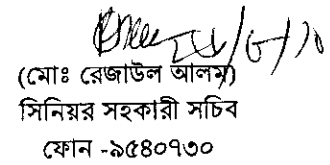 (মোঃ রেজাউল আলম)
সিনিয়র সহকারী সচিব
ফোন -৯৫৪০৭৩০